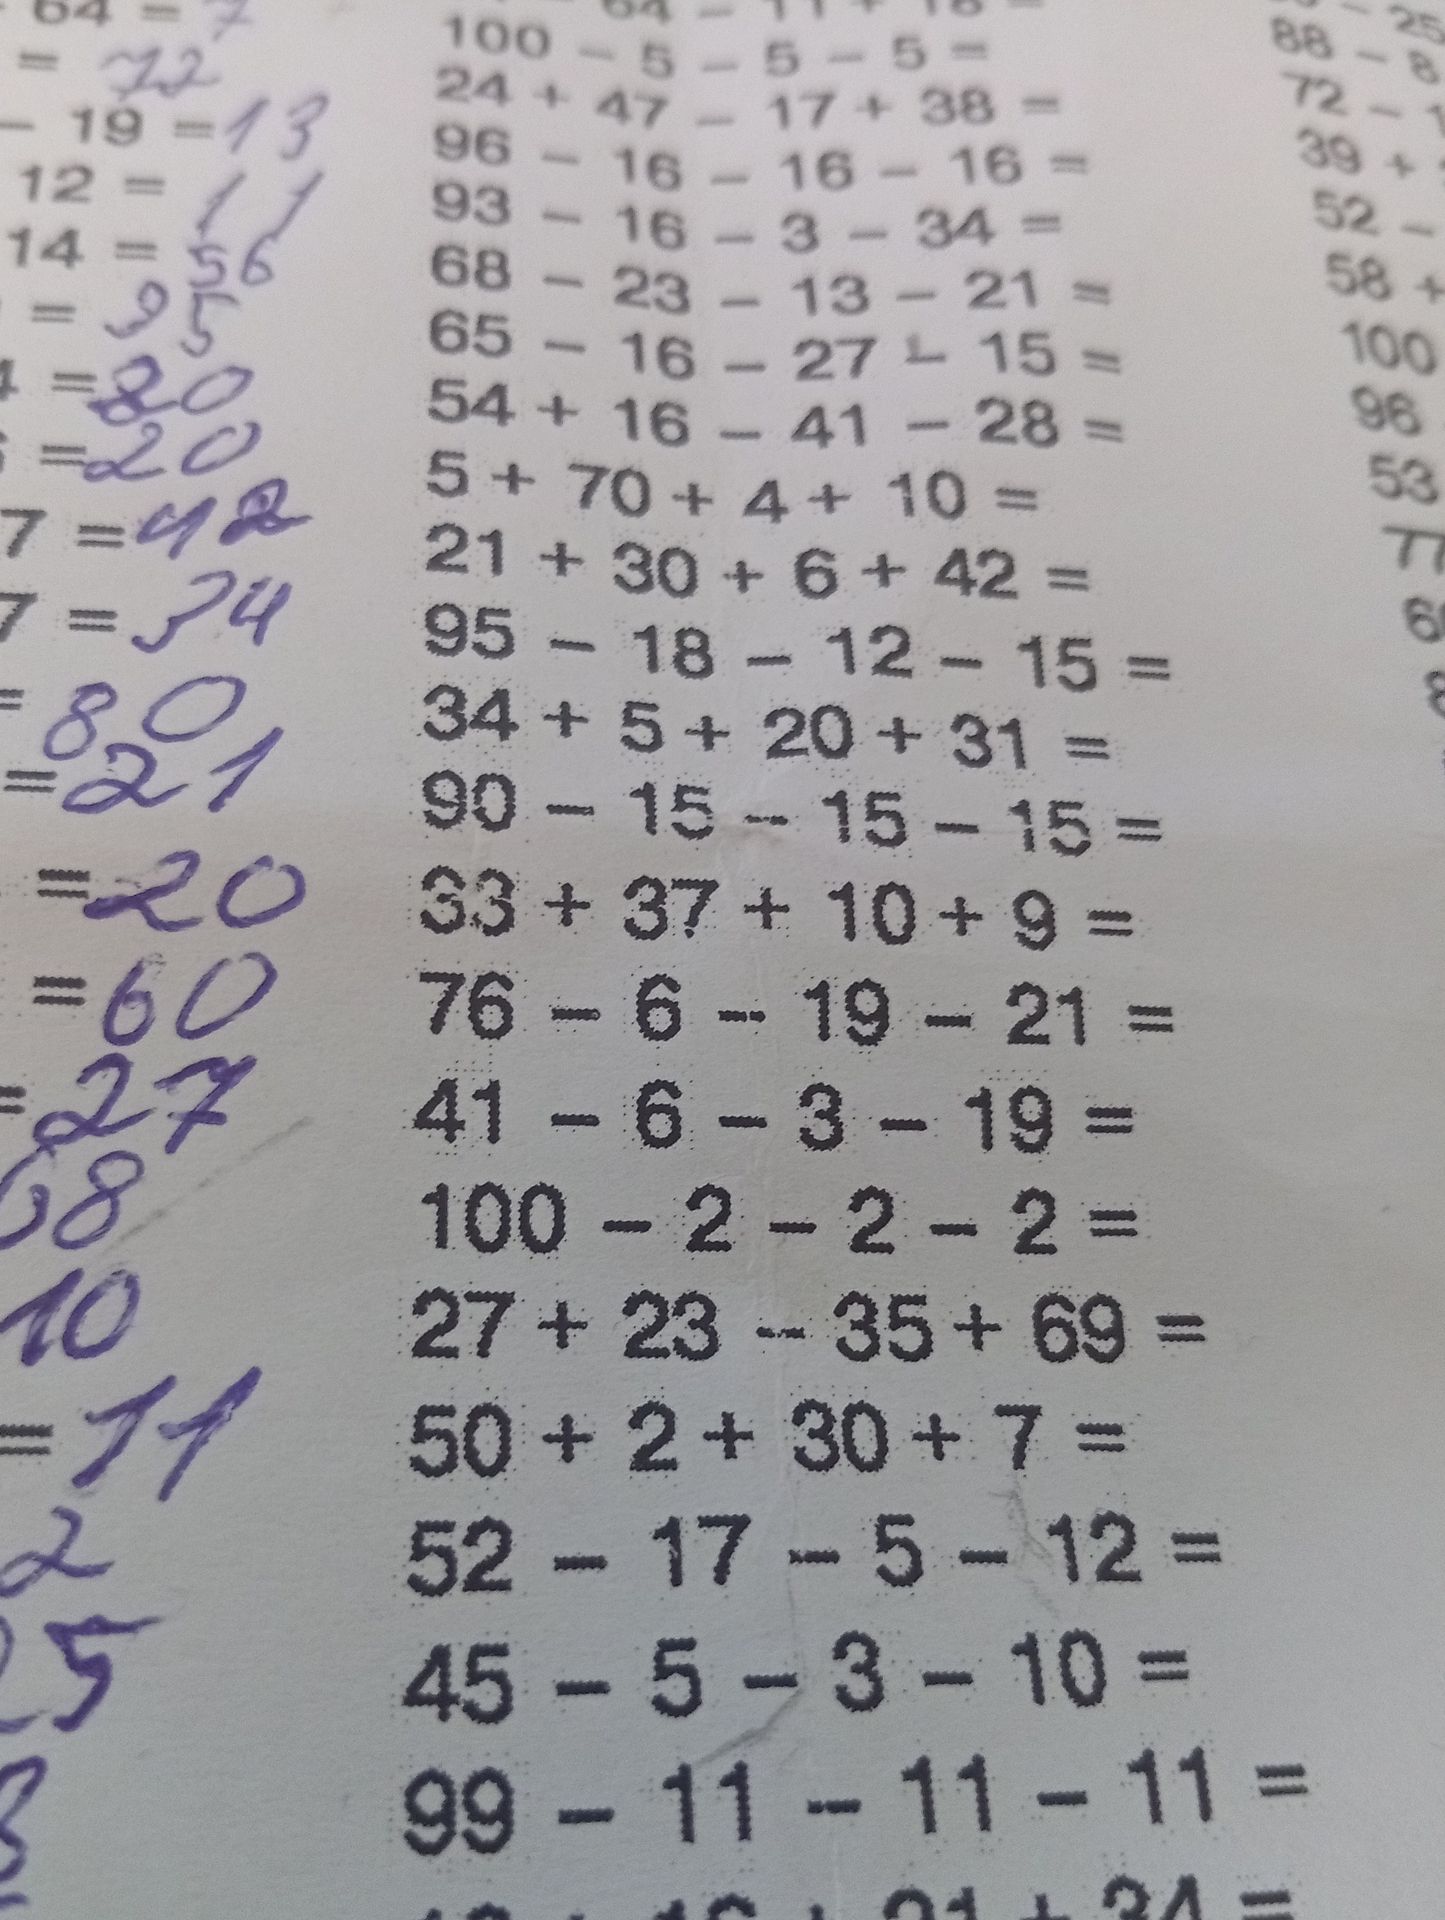 64 = 7
= 72
- 19 = 13
12 = 11
14 = 56
= 95
= 80
= 20
7 = 42
7 = 34
= 80
= 21
= 20
= 60
= 27
68
10
= 11
2
25
64 - 11 + 18 =
100 - 5 - 5 - 5 =
24 + 47 - 17 + 38 =
96 - 16 - 16 - 16 =
93 - 16 - 3 - 34 =
68 - 23 - 13 - 21 =
65 - 16 - 27 - 15 =
54 + 16 - 41 - 28 =
5 + 70 + 4 + 10 =
21 + 30 + 6 + 42 =
95 - 18 - 12 - 15 =
34 + 5 + 20 + 31 =
90 - 15 - 15 - 15 =
33 + 37 + 10 + 9 =
76 - 6 - 19 - 21 =
41 - 6 - 3 - 19 =
100 - 2 - 2 - 2 =
27 + 23 - 35 + 69 =
50 + 2 + 30 + 7 =
52 - 17 - 5 - 12 =
45 - 5 - 3 - 10 =
99 - 11 - 11 - 11 =
- 25
88 - 8
72 -
39 +
52 -
58 +
100
96
53
77